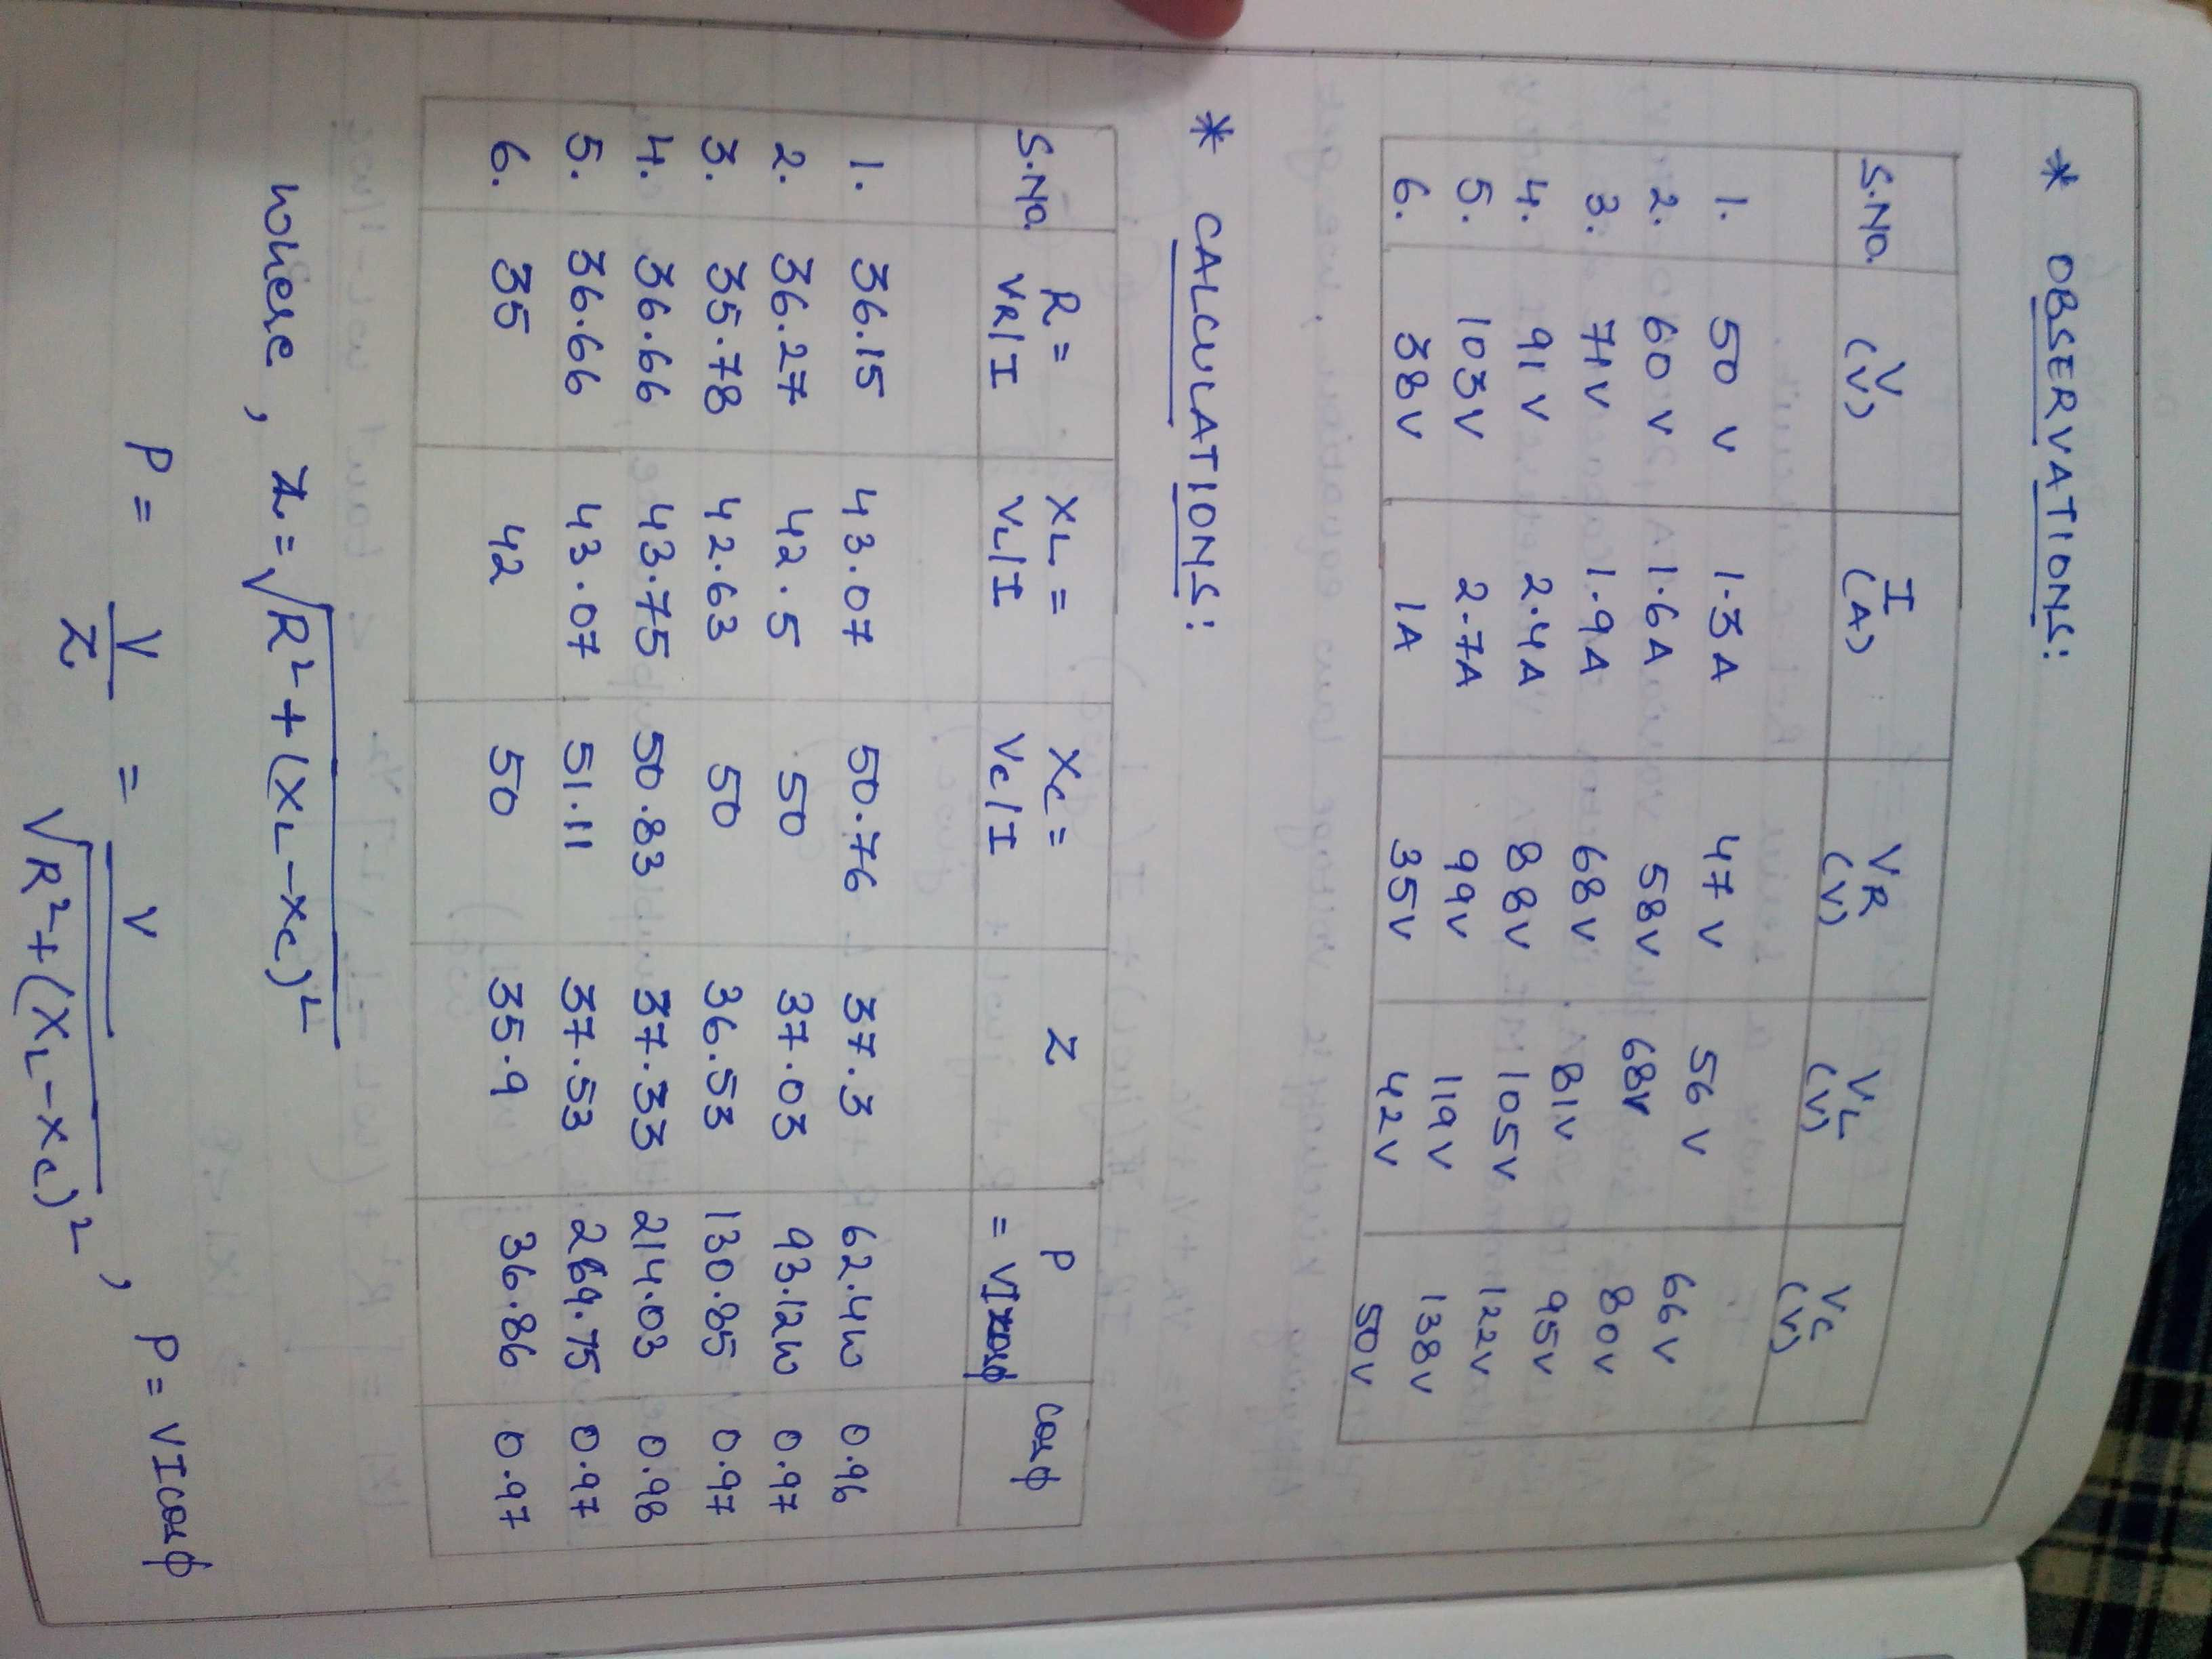 * OBSERVATIONS:
S.No. V (V) I (A) VR (V) VL (V) VC (V)
1. 50 V 1.3 A 47 V 56 V 66 V
2. 60 V 1.6A 58V 68V 80V
3. 71V 1.9A 68V 81V 95V
4. 91 V 2.4A 88V 105V 122V
5. 103V 2.7A 99V 119V 138V
6. 38V 1A 35V 42V 50V
* CALCULATIONS:
S.No. R = VR/I XL = VL/I XC = VC/I Z P = VIcosϕ cosϕ
1. 36.15 43.07 50.76 37.3 62.4W 0.96
2. 36.27 42.5 50 37.03 93.12W 0.97
3. 35.78 42.63 50 36.53 130.85 0.97
4. 36.66 43.75 50.83 37.33 214.03 0.98
5. 36.66 43.07 51.11 37.53 269.75 0.97
6. 35 42 50 35.9 36.86 0.97
where, Z = √R²+(XL-XC)²
P = V/Z = V/√R²+(XL-XC)², P = VIcosϕ